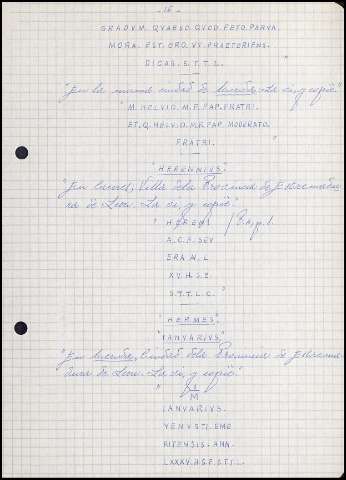 - 16 -
GRADVM. QVAESO. QVOD. PETO. PARVA.
MORA. EST. ORO. VT. PRAETORIENS.
DICAS. S.T.T.L.
"En la misma ciudad de la vi, y copié."
"M. HELVIO. M.F. PAP. FRATRI.
ET. Q. HELVIO. M.F. PAP. MODERATO.
FRATRI. "
"HERENNIVS."
"En Villa dela Provincia de Estremadu-
ra de Leon. La vi, y copié."
" HEREN
A.C.F. SEV
ERA N. L
XV. H.S.E.
S.T.T.L.C. "
"HERMES"
"IANVARIVS"
"En Ciudad dela Provincia de Estrema-
dura de Leon. La vi, y copié."
M
IANVARIVS.
VENVSTI. EME
RITENSIS. ANN.
LXXXV. H.S.E. S.T.T.L.